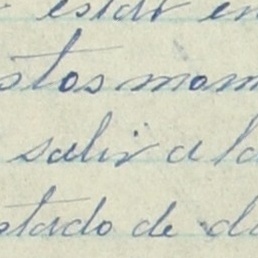 estar en
stos mom
salir a la
stado de d